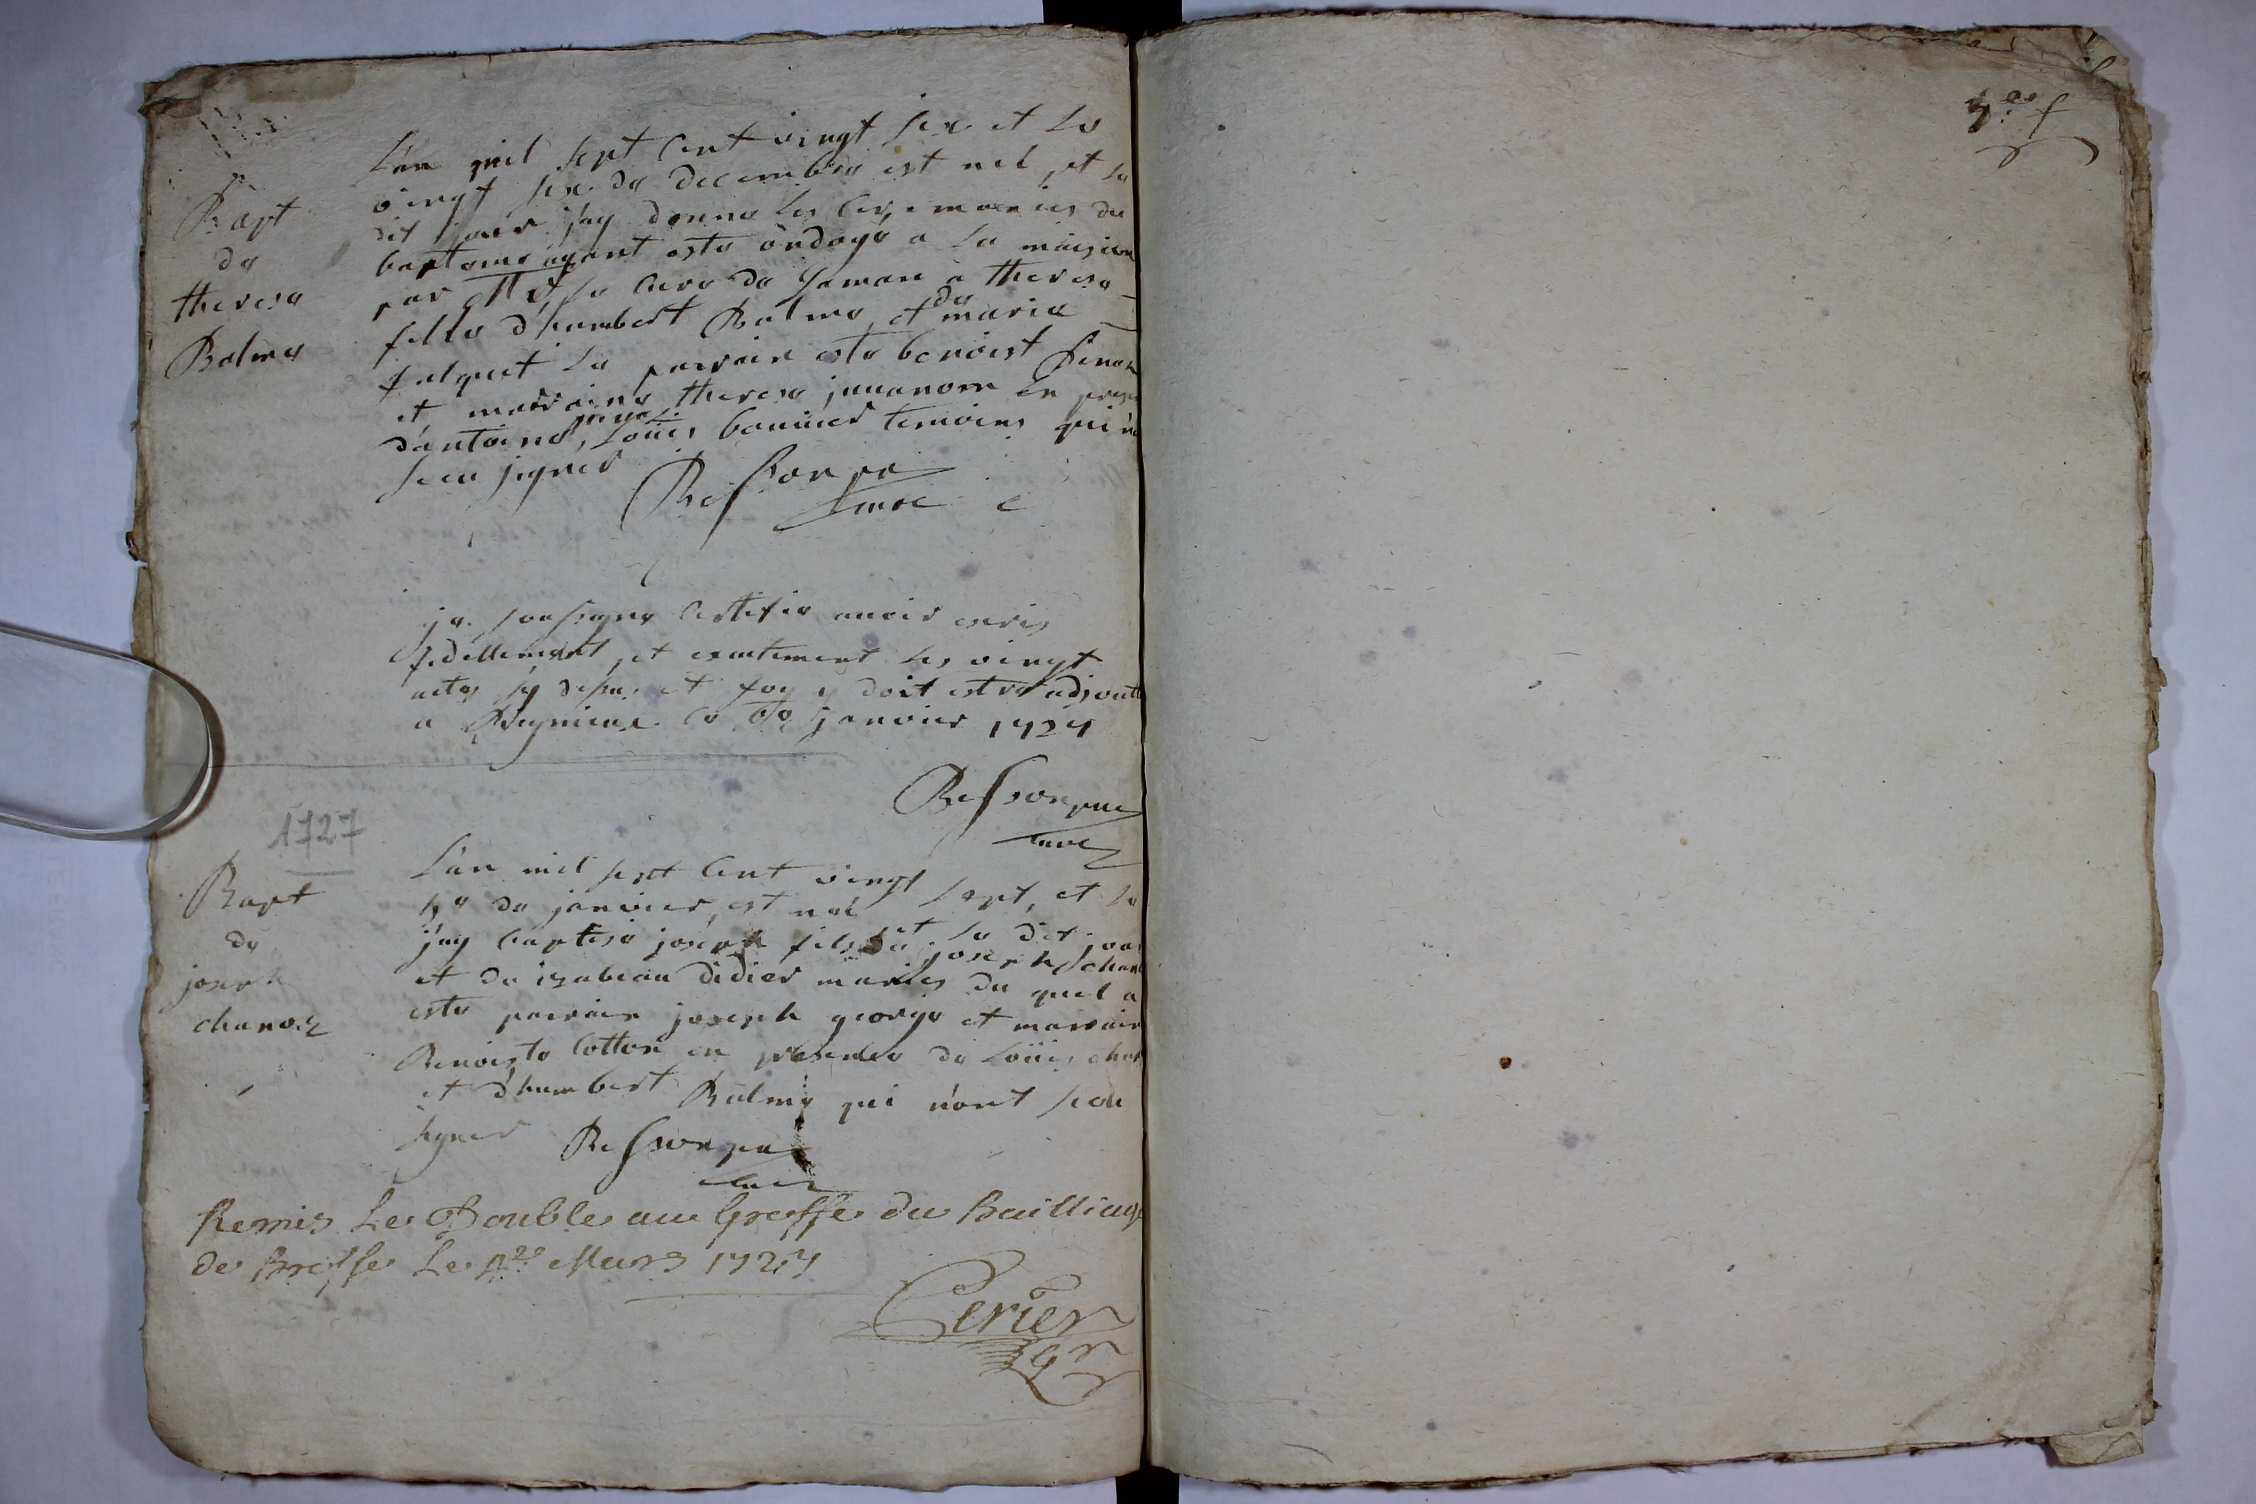 Bapt
de
therese
Balme
L'an mil sept cent vingt six et le
vingt six de decembre est neé, et le
dit jour j'ay donne les ceremonies du
baptesme ayant esté ondoyé a la maison
par Mr le curé de Jaman a therese
fille d'humbert Balme, et de marie
falquet le parrain esté benoist
et marraine therese juuanom en
d'antoine, Loüis bouuier temoins qui
sceu signer
Ressongea
curé
je soussigné certifie auoir escris
fidellement, et exactement les vingt
actes cy dessus et foy y doit estre adjoute
a Reignieux ce janvier 1727
Ressongea
curé
1727
Bapt
de
joseph
chanoz
L'an mil sept cent vingt sept, et le
de janvier, est neé et le dit jour
j'ay baptisé joseph fils de joseph
et de izabeau didier mariés du quel a
esté parrain joseph george et marrain
Benoiste Cotton en presence de Loüis
et d'humbert Balme qui n'ont sceu
signer Ressongea
curé
Remis Le Double au Greffe du Bailliage
de Bresse Le Mars 1727
Perier